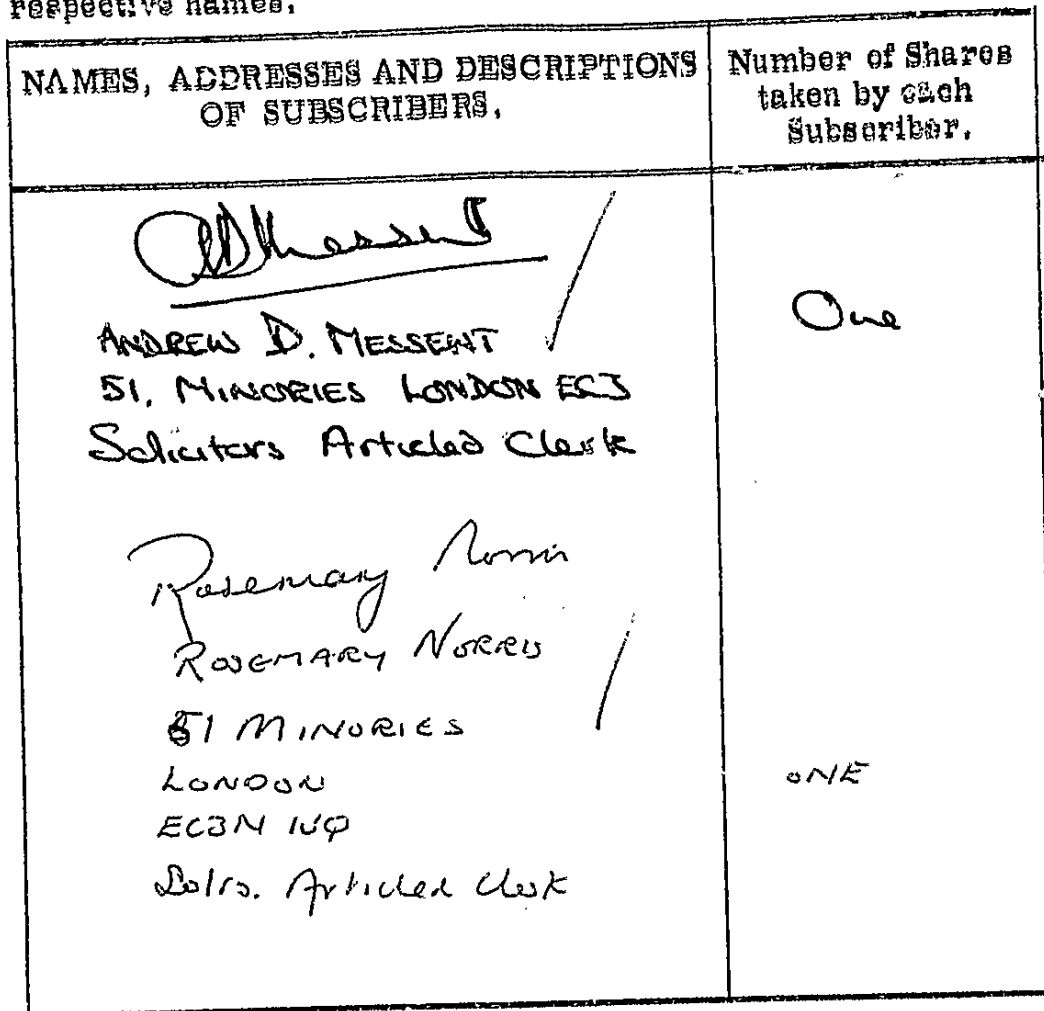 respective names.
NAMES, ADDRESSES AND DESCRIPTIONS
OF SUBSCRIBERS.
Number of Shares
taken by each
Subscriber.
ADMessent
ANDREW D. MESSENT
51, MINORIES LONDON EC3
Solicitors Articled Clerk
One
Rosemary Norris
ROSEMARY NORRIS
51 MINORIES
LONDON
EC3N 1JQ
Solrs. Articled Clerk
ONE